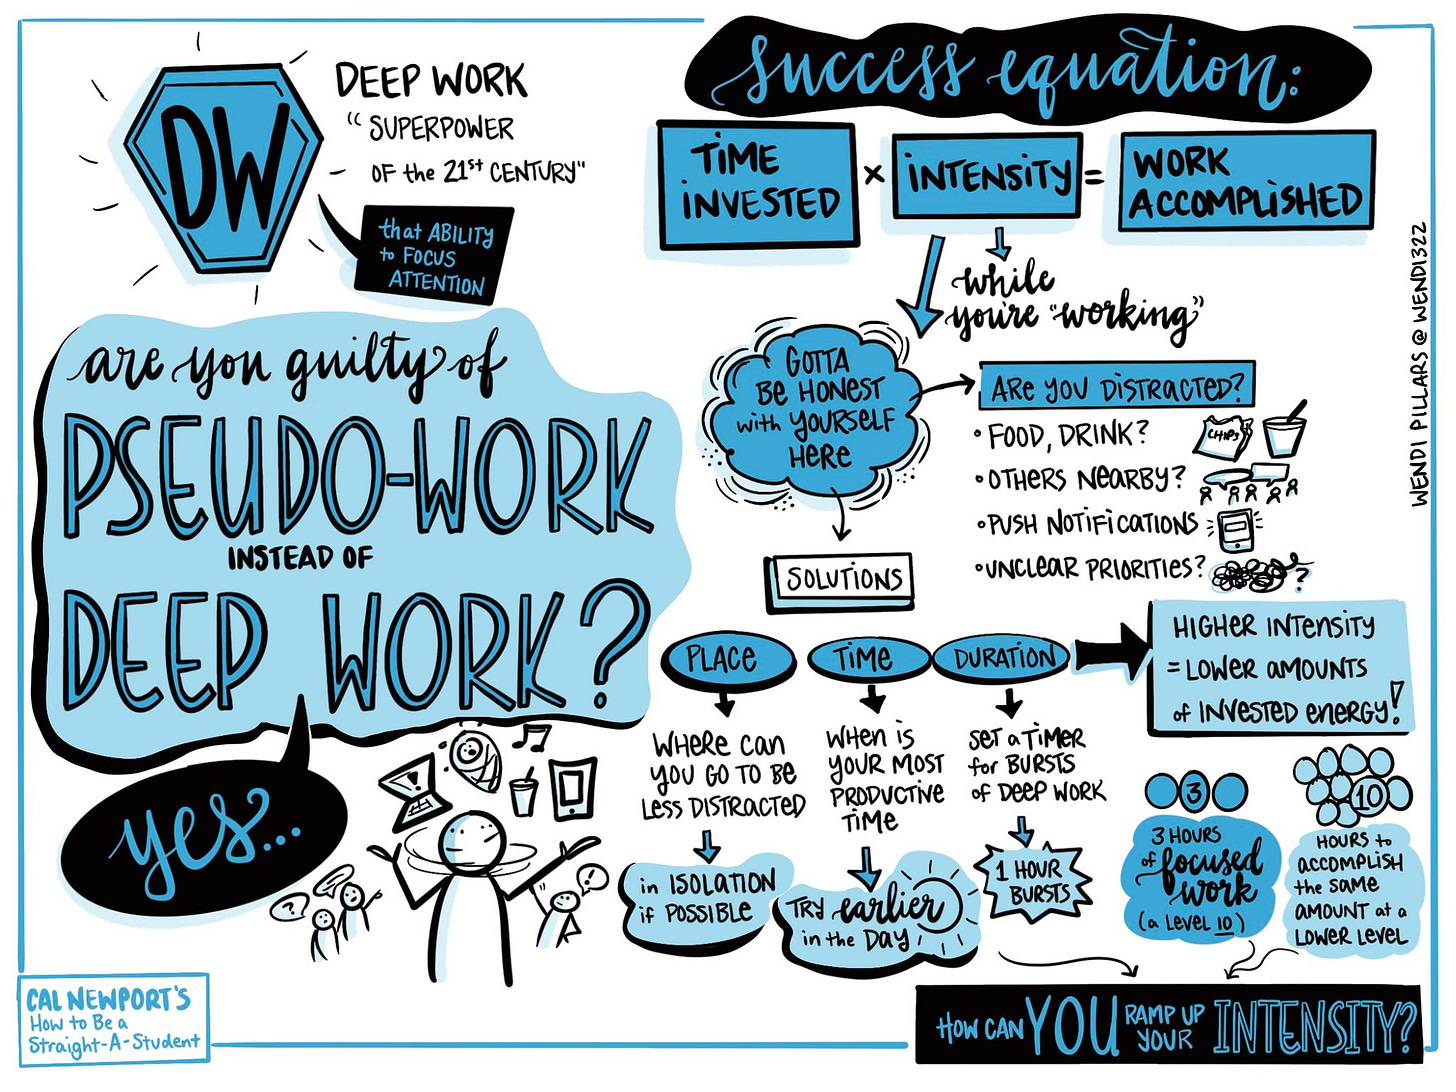 DW
DEEP WORK
"SUPERPOWER
OF the 21st CENTURY"
that ABILITY
to FOCUS
ATTENTION
are you guilty of
PSEUDO-WORK
INSTEAD OF
DEEP WORK?
yes...
?
!
!
CAL NEWPORT'S
How to Be a
Straight-A-Student
Success equation:
TIME
INVESTED
×
INTENSITY
=
WORK
ACCOMPLISHED
while
you're "working"
GOTTA
BE HONEST
with YOURSELF
HERE
ARE YOU DISTRACTED?
• FOOD, DRINK?
CHIPS
• OTHERS NEARBY?
• PUSH NOTIFICATIONS
• UNCLEAR PRIORITIES?
?
SOLUTIONS
PLACE
WHERE CAN
YOU GO TO BE
LESS DISTRACTED
in ISOLATION
if POSSIBLE
TIME
WHEN IS
YOUR MOST
PRODUCTIVE
TIME
TRY earlier
in the DAY
DURATION
SET a TIMER
for BURSTS
of DEEP WORK
1 HOUR
BURSTS
HIGHER INTENSITY
= LOWER AMOUNTS
of INVESTED ENERGY!
3
3 HOURS
of focused
work
(a LEVEL 10)
10
HOURS to
ACCOMPLISH
the SAME
AMOUNT at a
LOWER LEVEL
HOW CAN YOU RAMP UP YOUR INTENSITY?
WENDI PILLARS @ WENDI322